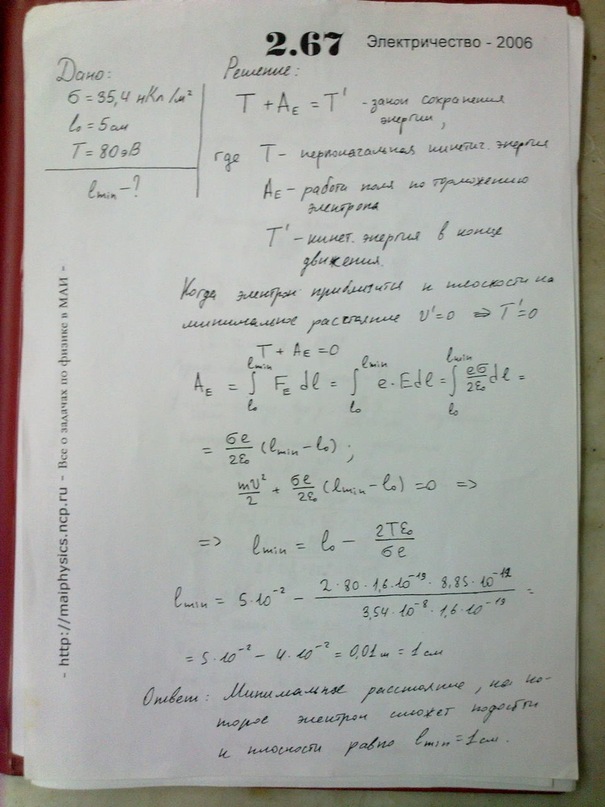 2.67 Электричество - 2006
Дано:
σ = 35,4 нКл/м²
l₀ = 5 см
T = 80 эВ
lmin - ?
Решение:
T + A_E = T' - закон сохранения
энергии,
где T - первоначальная кинетич. энергия
A_E - работа поля по торможению
электрона
T' - кинет. энергия в конце
движения.
Когда электрон приблизится к плоскости на
минимальное расстояние υ' = 0 ⇒ T' = 0
T + A_E = 0
A_E = ∫_{l₀}^{lmin} F_E dl = ∫_{l₀}^{lmin} e · E dl = ∫_{l₀}^{lmin} eσ/2ε₀ dl =
= σe/2ε₀ (lmin - l₀) ;
mυ²/2 + σe/2ε₀ (lmin - l₀) = 0 =>
=> lmin = l₀ - 2Tε₀/σe
lmin = 5·10⁻² - 2·80·1,6·10⁻¹⁹·8,85·10⁻¹²/3,54·10⁻⁸·1,6·10⁻¹⁹ =
= 5·10⁻² - 4·10⁻² = 0,01 м = 1 см
Ответ: Минимальное расстояние, на ко-
торое электрон сможет подойти
к плоскости равно lmin = 1 см.
- http://maiphysics.ncp.ru - Все о задачах по физике в МАИ -